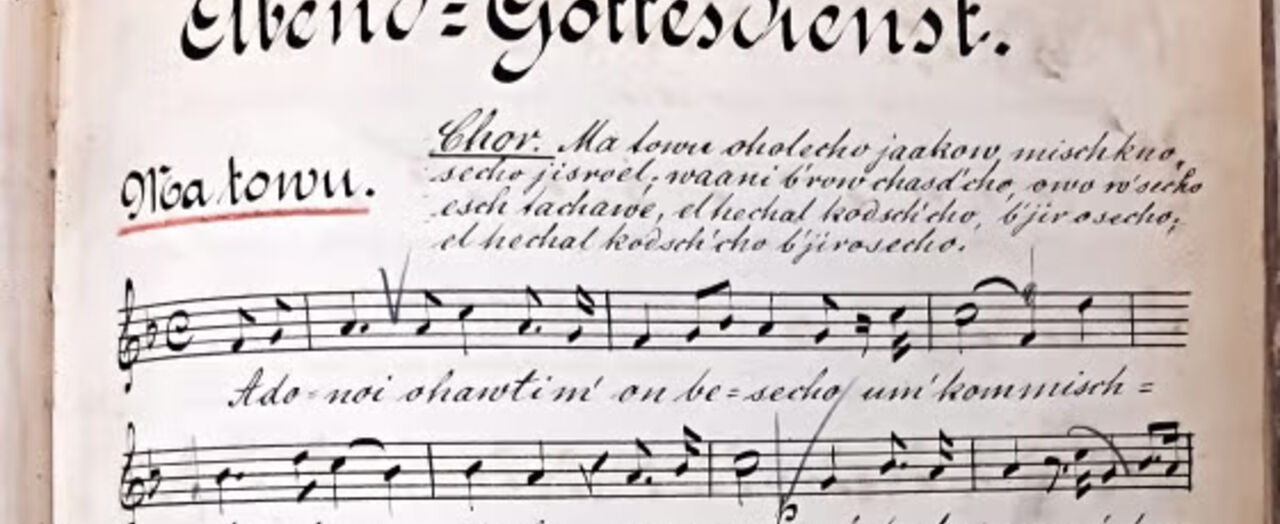 Abend=Gottesdienst.
Ma towu.
Chor. Ma towu oholecho jaakow, mischkno,
secho jisroel; waani b'row chasd'cho, owo w'secho
esch tachawe, el hechal kodsch'cho, b'jirosecho;
el hechal kodsch'cho b'jirosecho.
Ado=noi ohawtim' on be=secho um'kommisch=